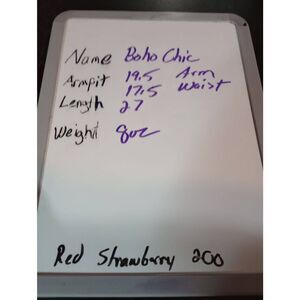 Name Boho Chic
Armpit 19.5 Arm
17.5 Waist
Length 27
Weight 8oz
Red Strawberry 200